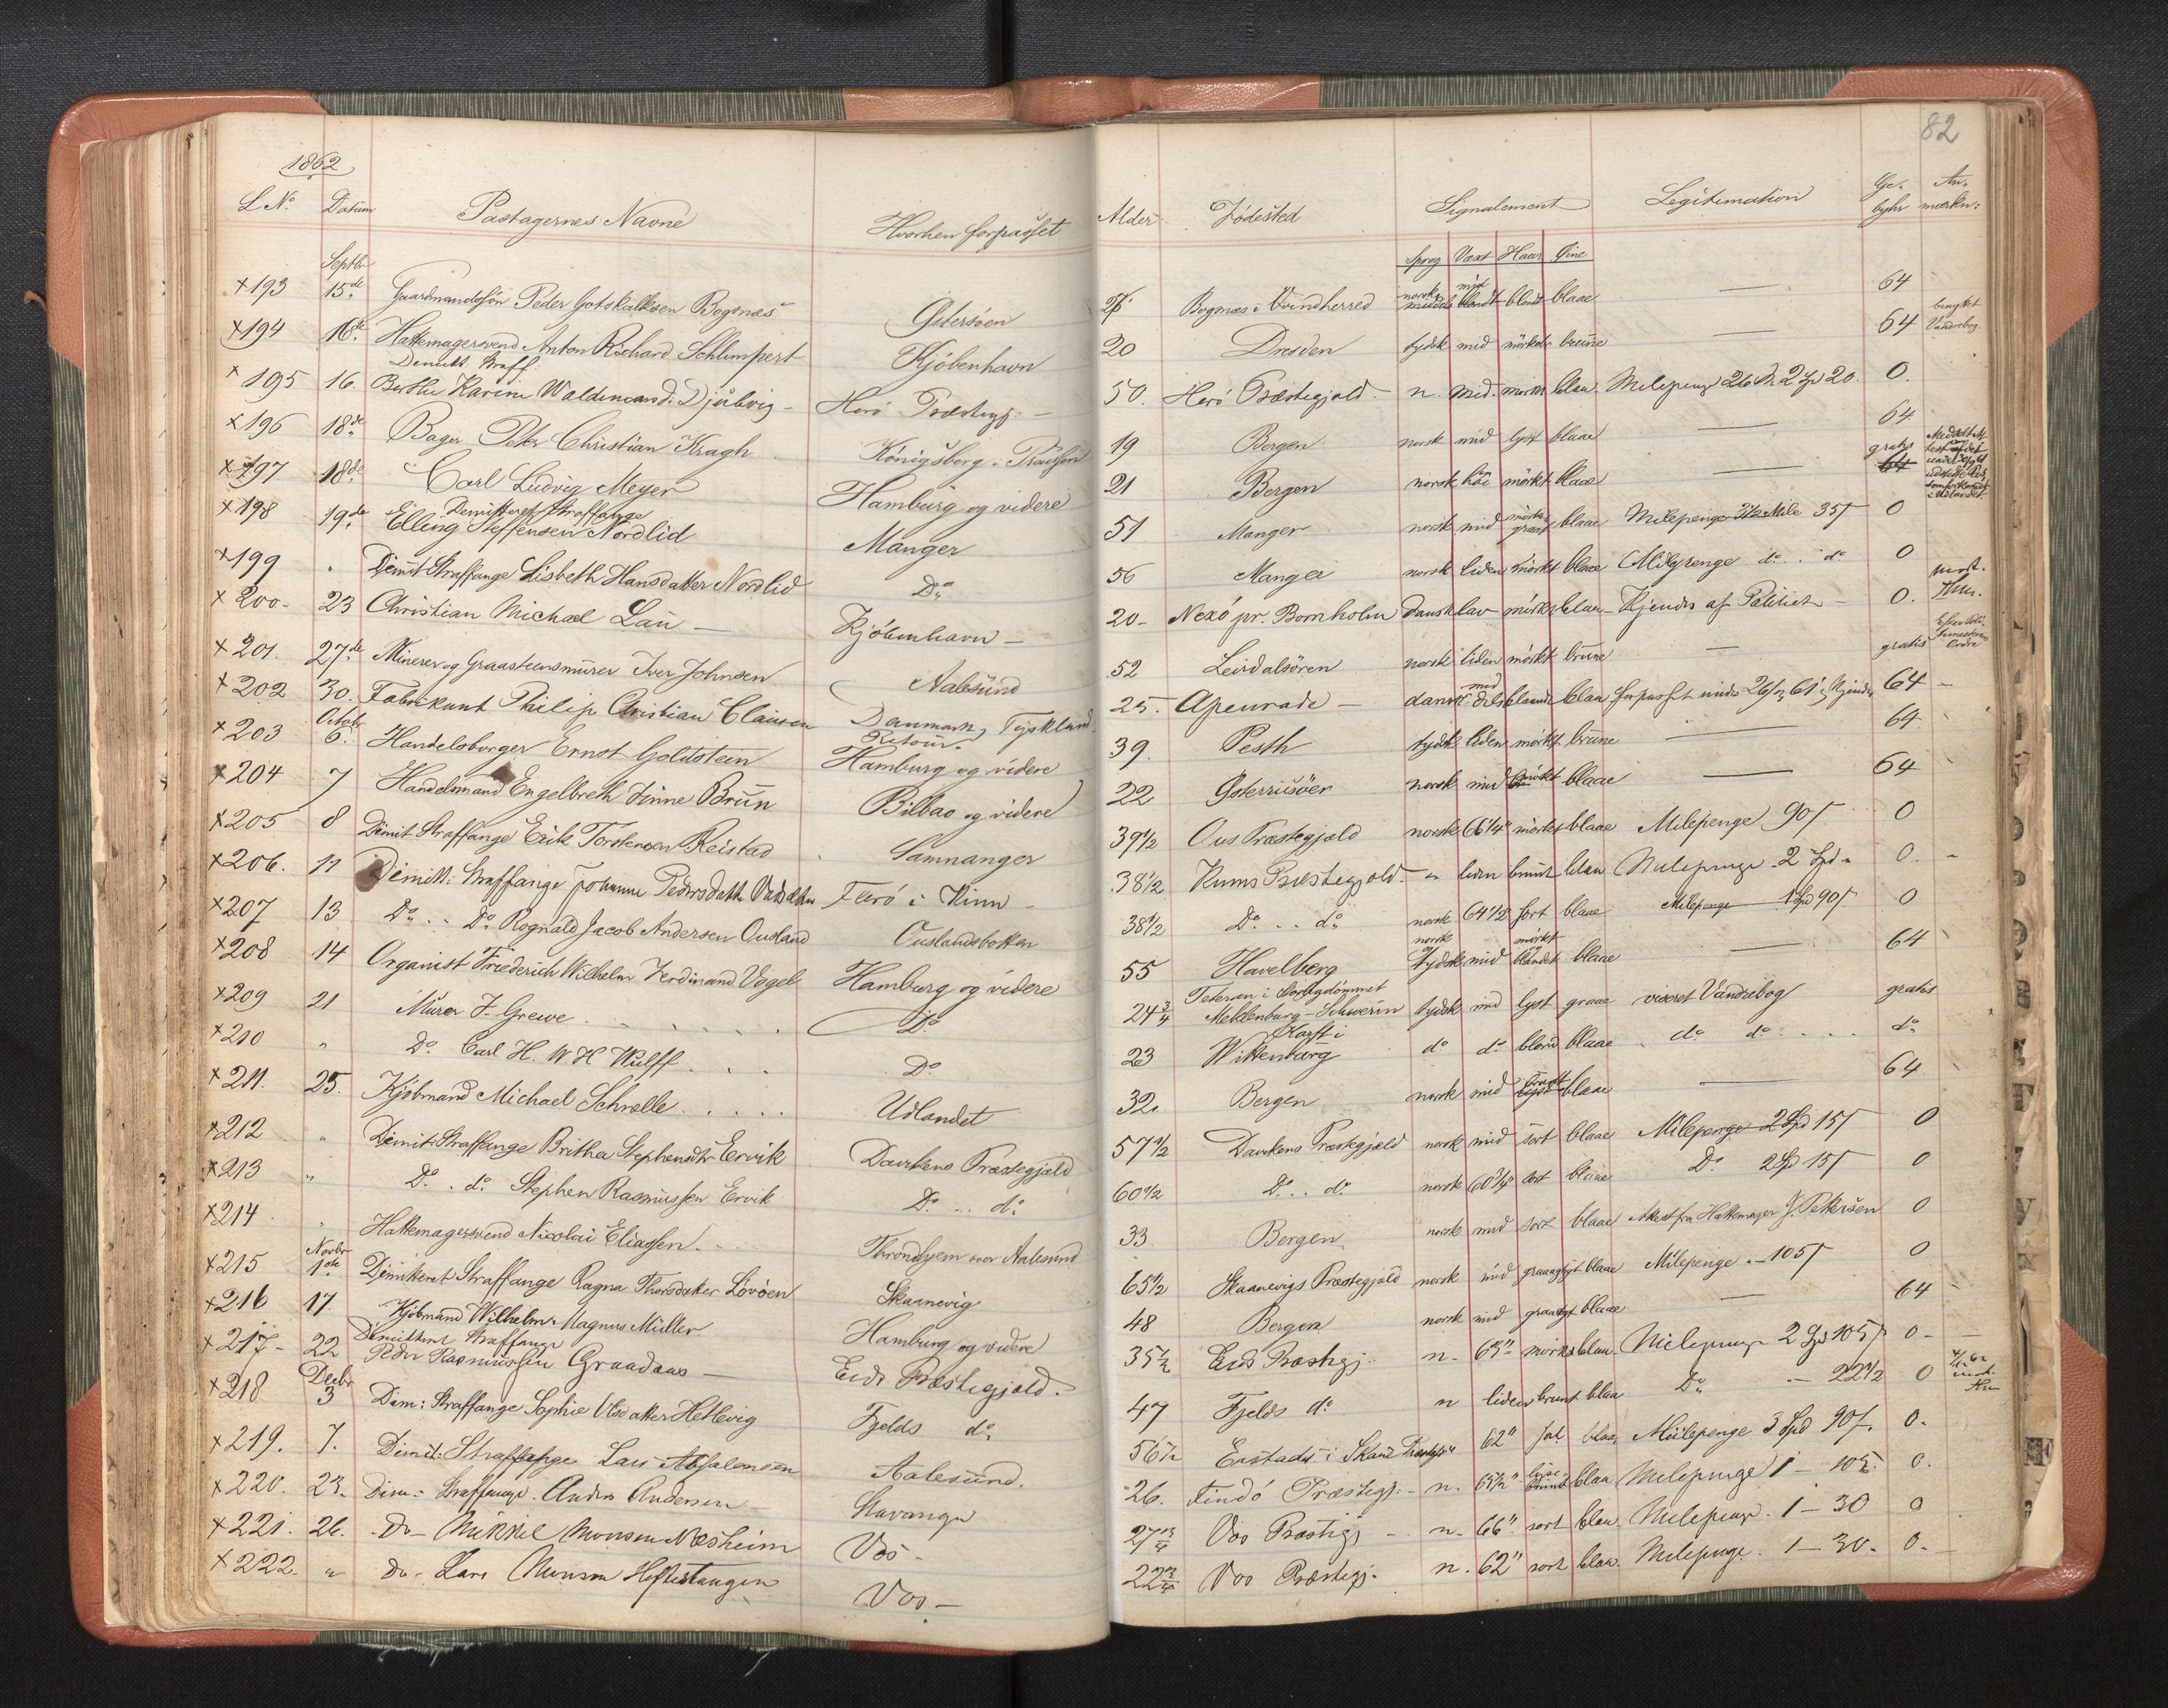 82
1862
L No. Datum Passagernes Navne Hvorhen forpasset Alder Födested Signalement Legitimation Gebyhr Anmærkn:
Sprog Væxt Haar Öine
Septbr
×193 15de Gaardmandssön Peder Gotskalksen Bogsnæs Östersöen Bogsnæs i Qvindherred norsk mid blondt blaae — 64
×194 16de Hattemagersvend Anton Richard Schlimpert Kjöbenhavn 20 Dresden tydsk mid mörkt brune — 64 benyttet Vandrebog
Demitt Straff
×195 16. Berthe Karine Waldemarsd. Djubvig – Herö Præstegj: – 50. Herö Præstegjæld – n mid. mörk blaa Milepenge 26 M 2 Sp 20. 0.
×196 18de Bager Peter Christian Kragh Königsberg i Preussen 19 Bergen norsk mid lyst blaae — 64
×197 18de Carl Ludvig Meyer Hamburg og videre 21 Bergen norsk höi mörkt blaae — gratis 64
Demitteret Straffange
×198 19de Elling Steffensen Nordlid Manger 51 Manger norsk mid mörkt graat blaae Milepenge 3½ Mile 35ſ 0
×199 " Demit Straffange Lisbeth Hansdatter Nordlid Do 56 Manger norsk liden mörkt blaae Milepenge do .. do 0
×200– 23 Christian Michael Lau – Kjöbenhavn – 20– Nexö pr. Bornholm dansk lav mörk blaa – Kjendes af Politiet – 0.
×201. 27de Minerer og Graasteensmurer Iver Johnsen Aalesund 52 Leirdalsören norsk liden mörkt brune — gratis
×202 30. Fabrikant Philip Christian Clausen Danmark, Tyskland Retour. 25. Apenrade – dansk middels blonde blaa forpasset under 26/7 61 & Kjendes 64 –
Octobr
×203 6. Handelsborger Ernst Goldstein Hamburg og videre 39. Pesth tydsk liden mörkt brune — 64
×204 7 Handelsmand Engelbreth Finne Brun Bilbao og videre 22 Österriisöer norsk mid mörkt blaae — 64
×205 8 Dimit Straffange Erik Torstensen Reistad Samnanger 39½ Ous Præstegjæld norsk 66¼" mörkt blaae Milepenge 90ſ 0
×206. 11 Dimitt: Straffange Johanne Pedersdatter Florö i Kinn – 38½ Kinns Præstegjæld – n liden brunt blaa Milepenge 2 Spd " 0. –
×207 13 Do .. Do Rognald Jacob Andersen Ousland Ouslandsbotten 38½ Do .. do norsk 64½ sort blaae Milepenge 1 Spd 90ſ 0
×208 14 Organist Friederich Wilhelm Ferdinand Vogel Hamburg og videre 55 Havelberg norsk og tydsk mid mörkt og blandet blaae — 64
×209 21 Murer F. Grewe . . . . Do 24¾ Teteran i Storhertugdömmet Meklenburg-Schwerin tydsk mid lyst graae viseret Vandrebog gratis
×210 " Do Carl H. W. H Wulff . . . Do 23 Karft i Wittenburg do do blond blaae do do . . . . do
×211. 25. Kjöbmand Michael Schrelle . . . . Udlandet 32. Bergen norsk mid brunt blaae — 64
×212 " Dimit Straffange Brithe Stephensdtr Ervik Davikens Præstegjæld 57½ Davikens Præstegjæld norsk mid sort blaae Milepenge 2 Spd 15ſ 0
×213 " Do . do Stephen Rasmussen Ervik Do .. do 60½ Do .. do norsk 60¾" sort blaae Do 2 Sp 15ſ 0
×214 . Hattemagersvend Nicolai Eliassen . . Throndhjem over Aalesund 33 Bergen norsk mid sort blaae Attest fra Hattemager J. Petersen 0
Novbr
×215 1ste Dimitteret Straffange Ragna Thorsdatter Lövöen Skaanevig 65½ Skaanevigs Præstegjæld norsk mid graasprengt blaae Milepenge .– 105ſ 0
×216 17. Kjöbmand Wilhelm Magnus Müller Hamburg og videre 48 Bergen norsk mid graasprengt blaae — 64
Dimitteret Straffange
×217– 22 Peder Rasmussen Graadaas – Eids Præstegjæld. 35½ Eids Præstegj. n– 63" mörk blaa Milepenge 2 Spd 105ſ 0–
Decbr
×218 3 Dim: Straffange Sophie Olsdatter Hetlevig Fjelds do 47 Fjelds do n liden brunt blaa Do – 22½ 0
×219. 7. Dimit: Straffange Lars Absalonsen Aalesund. 56½ Præstegj. 62" blaa Milepenge 3 Spd 90ſ. 0.
×220. 23. Dim: Straffange Anders Andersen – Stavanger 26. Findö Præstegj. – n. 65½" lysebrunt blaa Milepenge 1 – 105. 0.
×221. 26. Do – Mikkel Monsen Næsheim Vos – 27¾ Vos Præstegj – n– 66" sort blaa. Milepenge . 1 – 30 0
×222. " Do – Lars Monsen Heftestangen Vos – 22¾ Vos Præstegj. n. 62" sort blaa. Milepenge . 1 – 30. 0.–